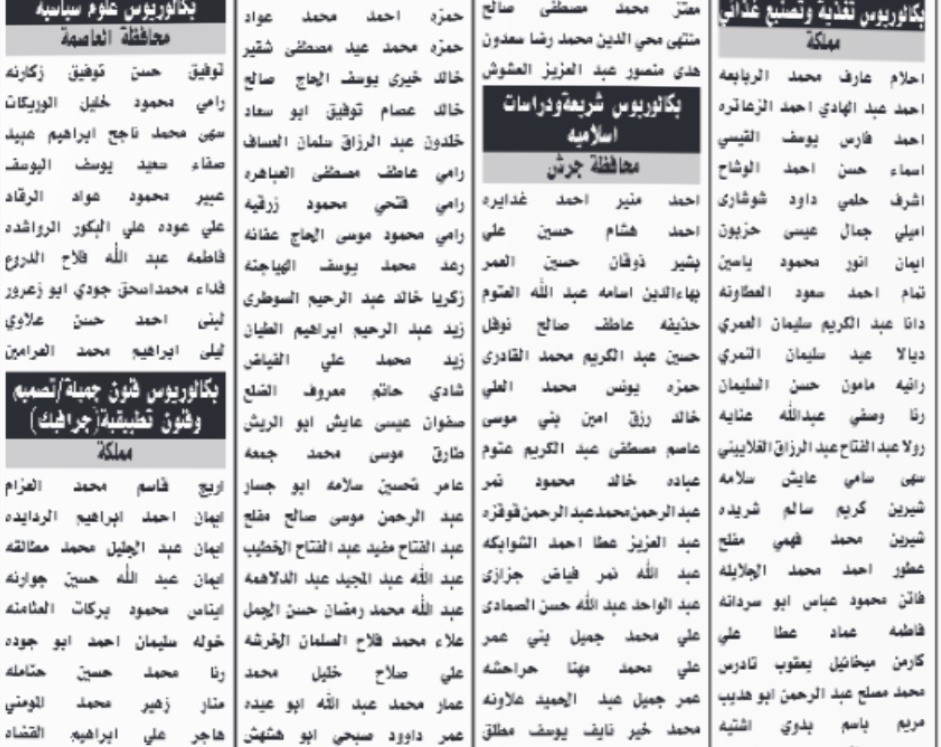 بكالوريوس تغذية وتصنيع غذائي
مملكة
احلام عارف محمد الربابعه
احمد عبد الهادي احمد الزعاتره
احمد فارس يوسف القيسي
اسماء حسن احمد الوشاح
اشرف حلمي داود شوشارى
اميلي جمال عيسى حزبون
ايمان انور محمود ياسين
تمام احمد سعود العطاونه
دانا عبد الكريم سليمان العمري
ديالا عيد سليمان النمري
رانيه مامون حسن السليمان
رنا وصفي عبدالله عنايه
رولا عبد الفتاح عبد الرزاق القلاييني
سهى سامي عايش سلامه
شيرين كريم سالم شريده
شيرين محمد فهمي مفلح
عطور احمد محمد الجلايله
فاتن محمود عباس ابو سردانه
فاطمه عماد عطا علي
كارمن ميخائيل يعقوب تادرس
محمد مصلح عبد الرحمن ابو هديب
مريم باسم بدوي اشتيه
معتز محمد مصطفى صالح
منتهى محي الدين محمد رضا سعدون
هدى منصور عبد العزيز العشوش
بكالوريوس شريعةودراسات
اسلاميه
محافظة جرش
احمد منير احمد غدايره
احمد هشام حسين علي
بشير ذوقان حسين العمر
بهاءالدين اسامه عبد الله العتوم
حذيفه عاطف صالح نوفل
حسين عبد الكريم محمد القادرى
حمزه يونس محمد العلي
خالد رزق امين بني موسى
عاصم مصطفى عبد الكريم عتوم
عباده خالد محمود نمر
عبدالرحمن محمد عبدالرحمن قوقزه
عبد العزيز عطا احمد الشوابكه
عبد الله نمر فياض جزازى
عبد الواحد عبد الله حسن الصمادى
علي محمد جميل بني عمر
علي محمد مهنا حراحشه
عمر جميل عبد الحميد علاونه
محمد خير نايف يوسف مطلق
حمزه احمد محمد عواد
حمزه محمد عيد مصطفى شقير
خالد خيرى يوسف الحاج صالح
خالد عصام توفيق ابو سعاد
خلدون عبد الرزاق سلمان العساف
رامي عاطف مصطفى العباهره
رامي فتحي محمود زرقيه
رامي محمود موسى الحاج عفانه
رعد محمد يوسف الهياجنه
زكريا خالد عبد الرحيم السوطرى
زيد عبد الرحيم ابراهيم الطيان
زيد محمد علي الفياض
شادي حاتم معروف الضلع
صفوان عيسى عايش ابو الريش
طارق موسى محمد جمعه
عامر تحسين سلامه ابو جسار
عبد الرحمن موسى صالح مفلح
عبد الفتاح مفيد عبد الفتاح الخطيب
عبد الله عبد المجيد عبد الدلاهمة
عبد الله محمد رمضان حسن الجمل
علاء محمد فلاح السلمان الخرشه
علي صلاح خليل محمد
عمار محمد عبد الله ابو عيده
عمر داوود صبحي ابو هشهش
بكالوريوس علوم سياسيه
محافظة العاصمة
توفيق حسن توفيق زكارنه
رامي محمود خليل الوريكات
سهى محمد ناجح ابراهيم عبيد
صفاء سعيد يوسف اليوسف
عبير محمود عواد الرقاد
علي عوده علي البكور الرواشده
فاطمه عبد الله فلاح الدروع
فداء محمداسحق جودي ابو زعرور
لبنى احمد حسن علاوي
ليلى ابراهيم محمد العرامين
بكالوريوس فنون جميلة/تصميم
وفنون تطبيقية(جرافيك)
مملكة
اريج قاسم محمد العزام
ايمان احمد ابراهيم الردايده
ايمان عبد الجليل محمد مطالقه
ايمان عبد الله حسين جوارنه
ايناس محمود بركات العثامنه
خوله سليمان احمد ابو جوده
رنا محمد حسين حتامله
منار زهير محمد المومني
هاجر علي ابراهيم القضاه